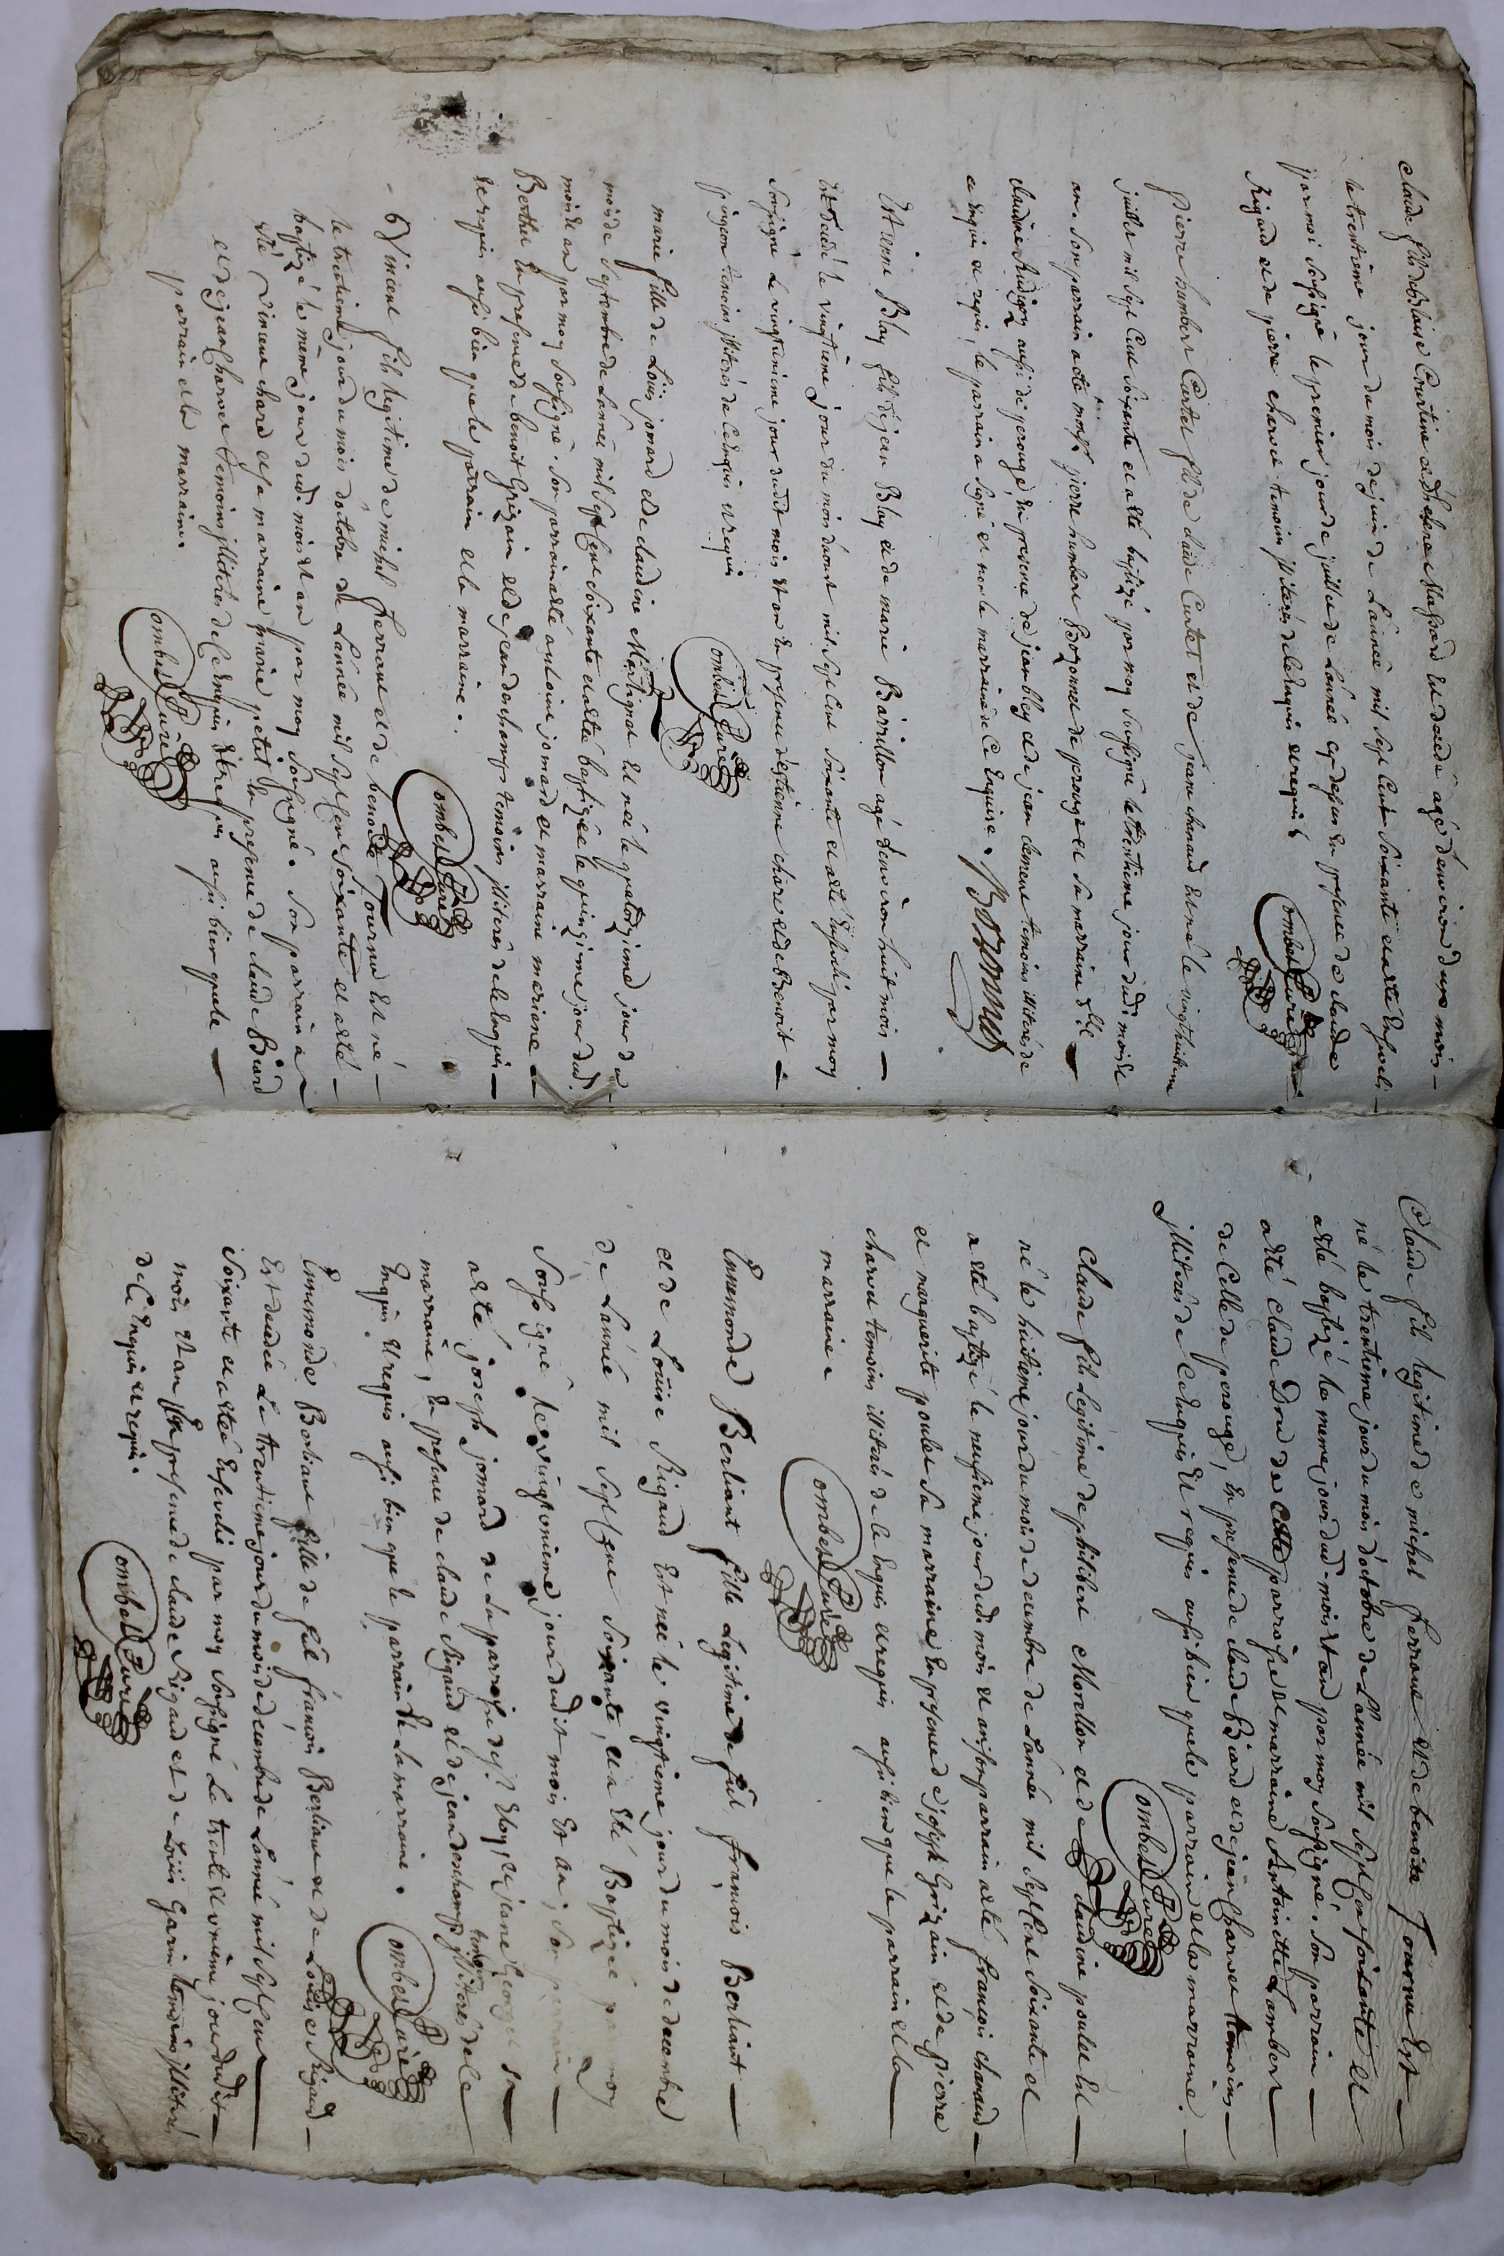 claude fils de blaise Courtine et d'Estiennette Massard Est decedé agé d'environ deux mois
le trentième jour du mois de juin de L'année mil sept Cent Soixante et a été Enseveli
par moi Soussigné le premier jour de juillet de L'année cy dessus En presence de claude
Rigaud et de pierre charvet temoins illiterés de ce Enquis et requis
ombet Curé
pierre humbert Cartet fils de claude Cartet et de jeanne chanaud Est né le vingthuitieme
juillet mil sept Cent Soixante et a été baptizé par moy Soussigné le trentieme jour dud. mois et
an. Son parrain a été mons.r pierre humbert Bozonnet de perouge et Sa marraine d.lle
claudine Rudigoz aussi de perouge En presence de jean bley et de jean clement temoins illiterés de
ce Enquis et requis, le parrain a signé et non la marraine de Ce Enquise.
Bozonnet
Estienne Blay fils de jean Blay et de marie Barrillon agé d'environ huit mois
Est decedé le vingtieme jour du mois d'aoust mil Sept Cent Soixante et a été Enseveli par moy
Soussigné Le vingtunieme jour dudit mois et an En presence d'estienne chare et de Benoit
pingeon temoins illiterés de ce Enquis et requis
ombet Curé
marie fille de Loüis jomard et de claudine Martignat Est née le quatorzieme jour du
mois de Septembre de L'année mil Sept Cent Soixante et a été baptizée le quinzieme jour dud.
mois et an par moy Soussigné. Son parrain a été antoine jomard et marraine mariane
Berthet En presence de benoit Grizain et de jean deschamps temoins illiterés de ce Enquis
et requis aussi bien que le parrain et la marraine.
ombet Curé
Vincent fils legitime de michel ferrant et de benoite Tournu Est né
le trentieme jour du mois d'octobre de L'année mil Sept Cent Soixante et a été
baptizé le même jour dud. mois et an par moy Soussigné. Son parrain a
été Vincent chare et Sa marraine marie petit En presence de claude Biard
et de jean Charvet temoins illiterés de Ce Enquis et requis aussi bien que le
parrain et la marraine.
ombet Curé
Claude fils legitime de michel ferrant et de benoite Tournu Est
né le trentieme jour du mois d'octobre de L'année mil Sept Cent Soixante et
a été baptizé le meme jour dud. mois et an par moy Soussigné. Son parrain
a été claude Dru de Cette parroisse et marraine Antoinette Lambert
de Celle de perouge, En presence de claude Biard et de jean Charvet temoins
illiterés de Ce Enquis Et requis aussi bien que le parrain et la marraine.
ombet Curé
Claude fils Legitime de philibert Morellon et de claudine poulet Est
né le huitieme jour du mois de decembre de L'année mil Sept Cent Soixante et
a été baptizé le neufieme jour dudit mois et an Son parrain a été françois chanaud
et marguerite poulet Sa marraine En presence de joseph Grizain et de pierre
charvet temoins illiterés de ce Enquis et requis aussi bien que le parrain et la
marraine.
ombet Curé
Ennemonde Berliant fille Legitime de fût françois Berliant
et de Loüise Rigaud Est née le vingtieme jour du mois de decembre
de L'année mil Sept Cent Soixante, et a été Baptizée par moy
Soussigné le vingtunieme jour dudit mois Et an; Son parrain
a été joseph jomard de La parroisse de s.t Eloy, et jeanne George Sa
marraine, En presence de claude Rigaud et de jean deschamps temoins illiterés de Ce
Enquis Et requis aussi bien que le parrain Et La marraine.
ombet Curé
Ennemonde Berliant fille de fût françois Berliant et de Loüise Rigaud
Est decedée Le trentieme jour du mois de decembre de L'année mil Sept Cent
Soixante et a été Ensevelie par moy Soussigné Le trente et unième jour dudit
mois Et an En presence de claude Rigaud et de Loüis Garin temoins illiterés
de Ce Enquis et requis.
ombet Curé